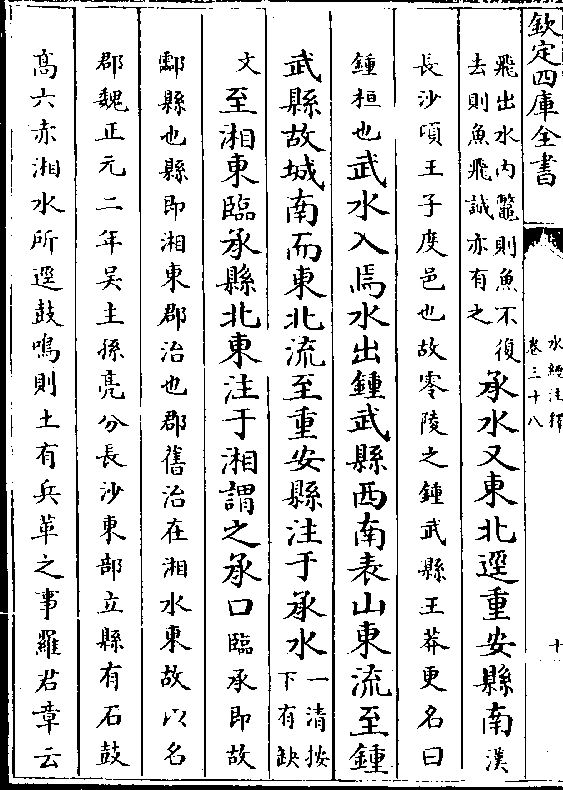 欽定四庫全書
水經注釋
卷三十八
十
飛出水內鼈則魚不復
去則魚飛誠亦有之
承水又東北逕重安縣南漢
長沙頃王子度邑也故零陵之鍾武縣王莽更名曰
鍾桓也武水入焉水出鍾武縣西南表山東流至鍾
武縣故城南而東北流至重安縣注于承水一清按
下有缺
文至湘東臨承縣北東注于湘謂之承口臨承即故
酃縣也縣即湘東郡治也郡舊治在湘水東故以名
郡魏正元二年吳主孫亮分長沙東部立縣有石鼓
高六赤湘水所逕鼓鳴則土有兵革之事羅君章云